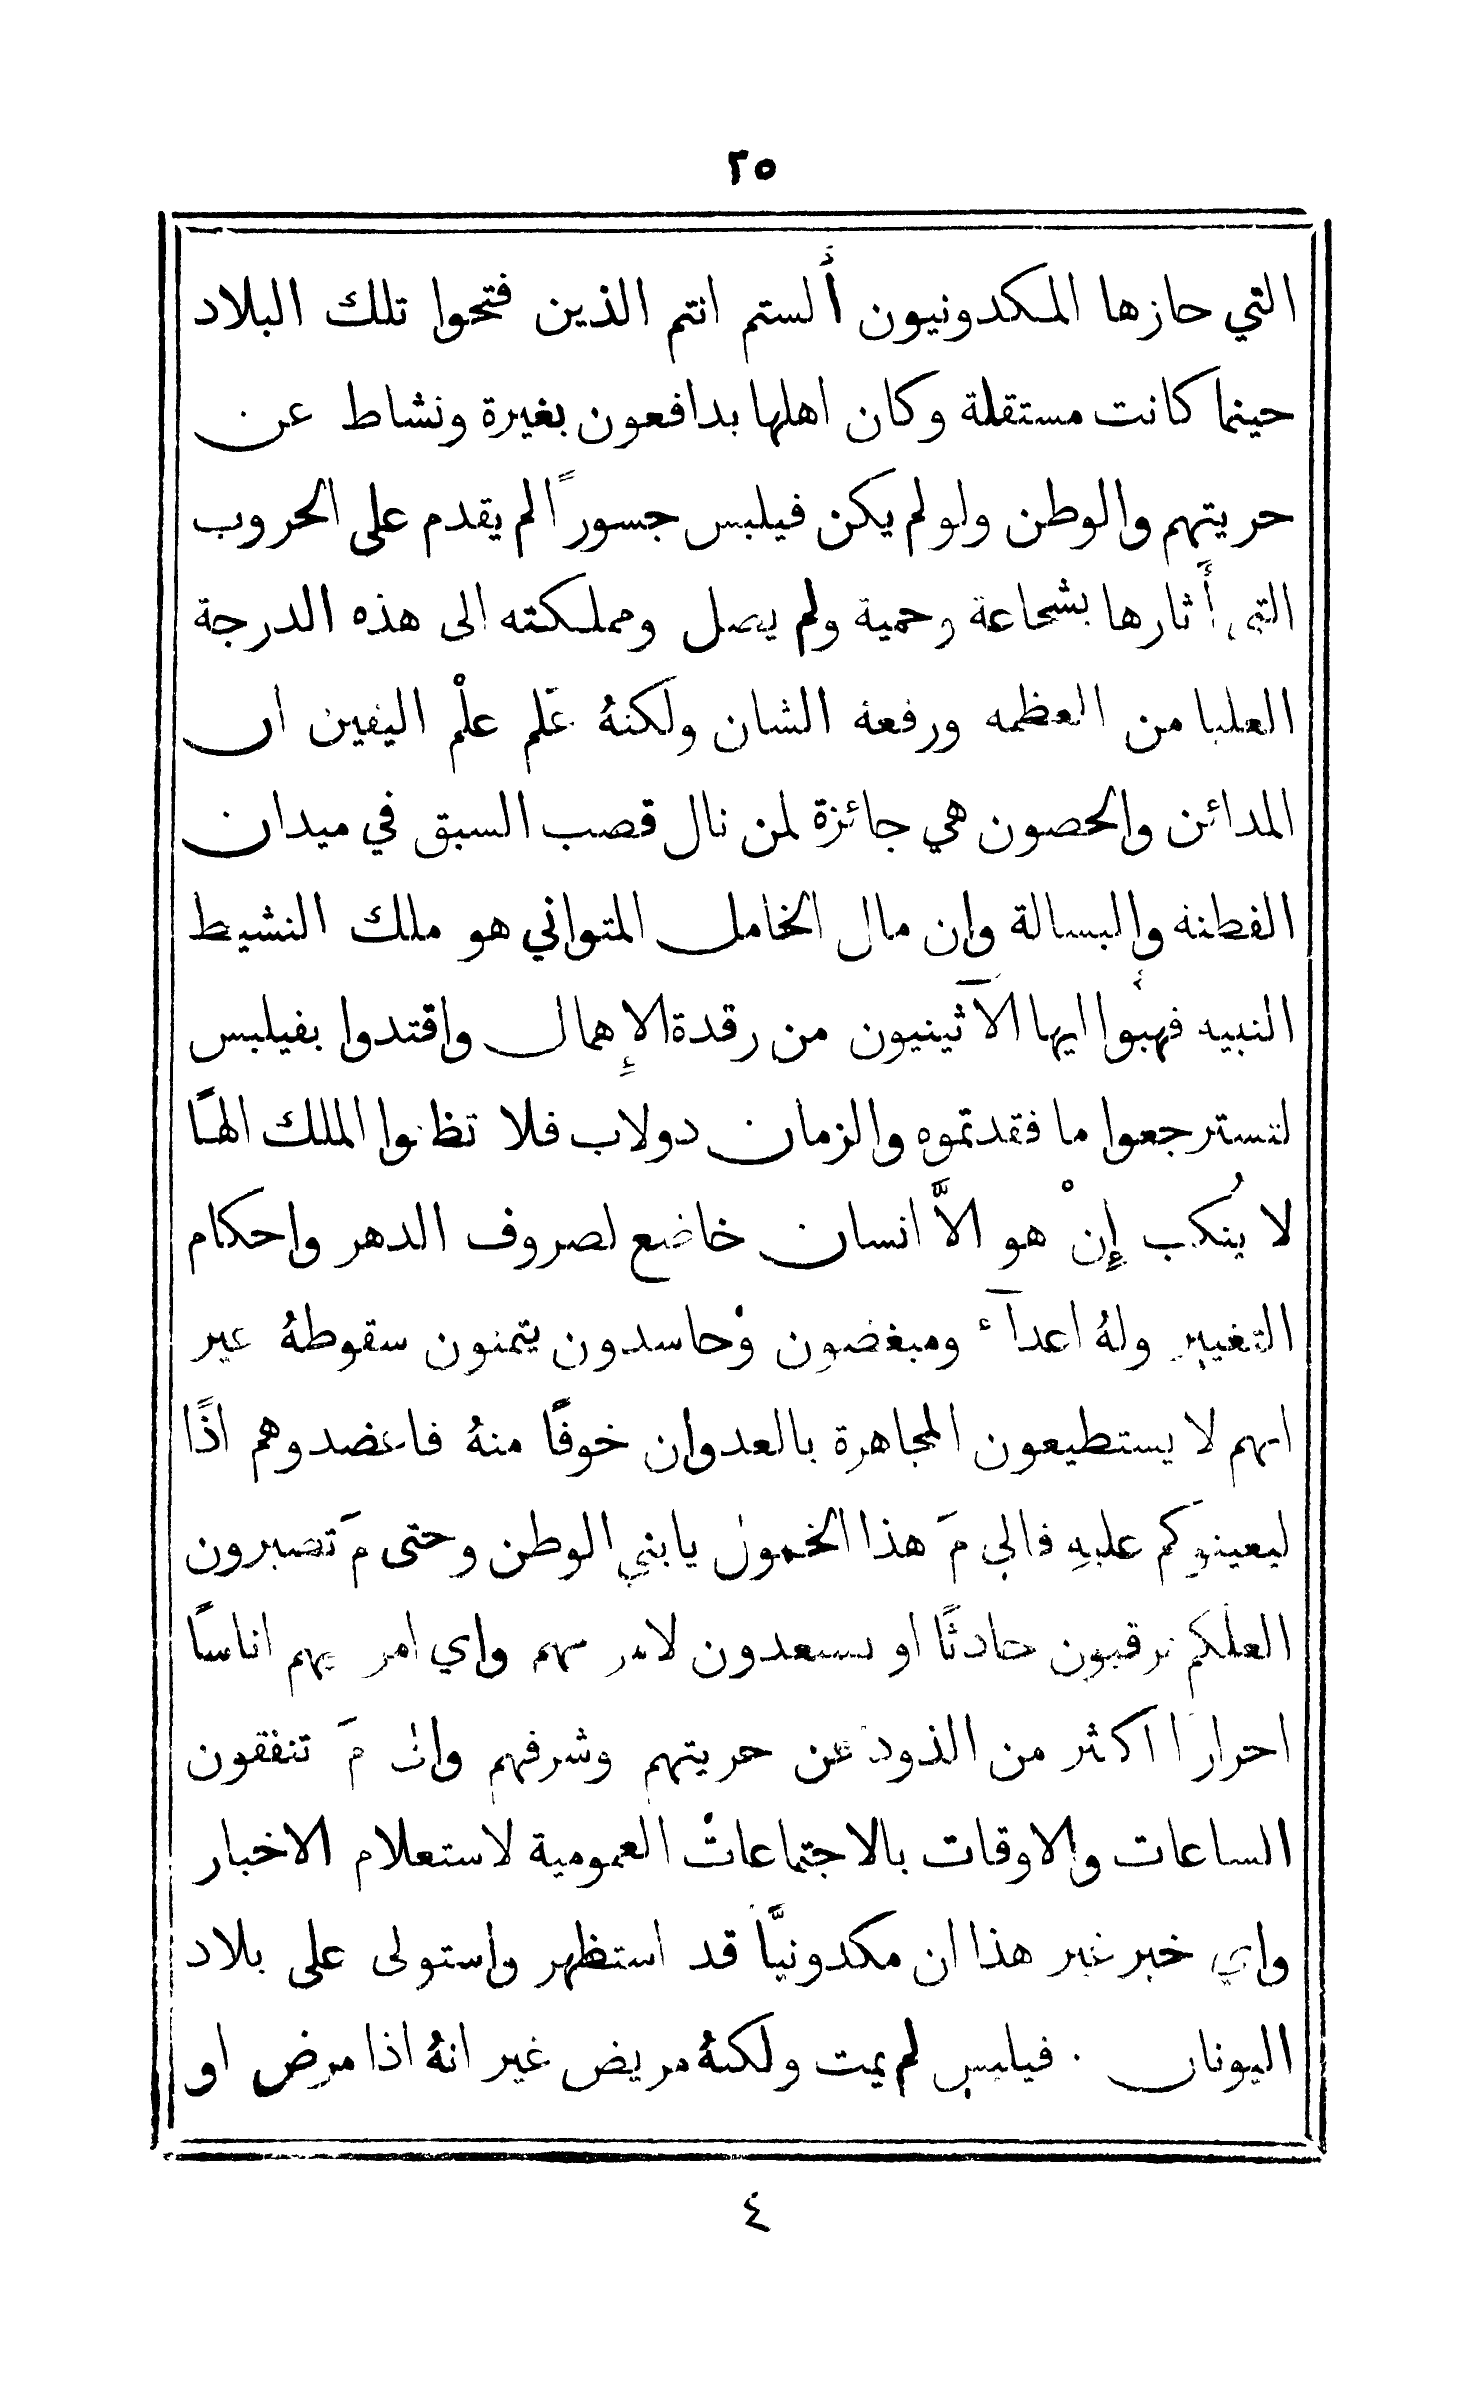 ٢٥
التي حازها المكدونيون أَلستم انتم الذين فتحوا تلك البلاد
حينما كانت مستقلة وكان اهلها يدافعون بغيرة ونشاط عن
حريتهم والوطن ولو لم يكن فيلبس جسورًا لم يقدم على الحروب
التي أَثارها بشجاعة وحمية ولم يصل ومملكته الى هذه الدرجة
العليا من العظمه ورفعة الشان ولكنهُ عَلم علْم اليقين ان
المدائن والحصون هي جائزة لمن نال قصب السبق في ميدان
الفطنة والبسالة وان مال الخامل المتواني هو ملك النشيط
النبيه فهبُّوا ايها الآثينيون من رقدة الإِهمال واقتدوا بفيلبس
لتسترجعوا ما فقدتموه والزمان دولاب فلا تظنوا الملك الهًا
لا يُنكب إِنْ هو الاَّ انسان خاضع لصروف الدهر واحكام
التغيير ولهُ اعدآء ومبغضون وحاسدون يتمنون سقوطهُ غير
انهم لا يستطيعون المجاهرة بالعدوان خوفًا منهُ فاعضدوهم اذًا
ليعينوكم عليهِ فالى مَ هذا الخمول يا بني الوطن وحتى مَ تصبرون
العلكم ترقبون حادثًا او تستعدون لامر مهم واي امر يهم اناسًا
احرارا اكثر من الذود عن حريتهم وشرفهم والى مَ تنفقون
الساعات والاوقات بالاجتماعات العمومية لاستعلام الاخبار
واي خبر غير هذا ان مكدونيًّا قد استظهر واستولى على بلاد
اليونان . فيلبس لم يمت ولكنهُ مريض غير انهُ اذا مرض او
٤